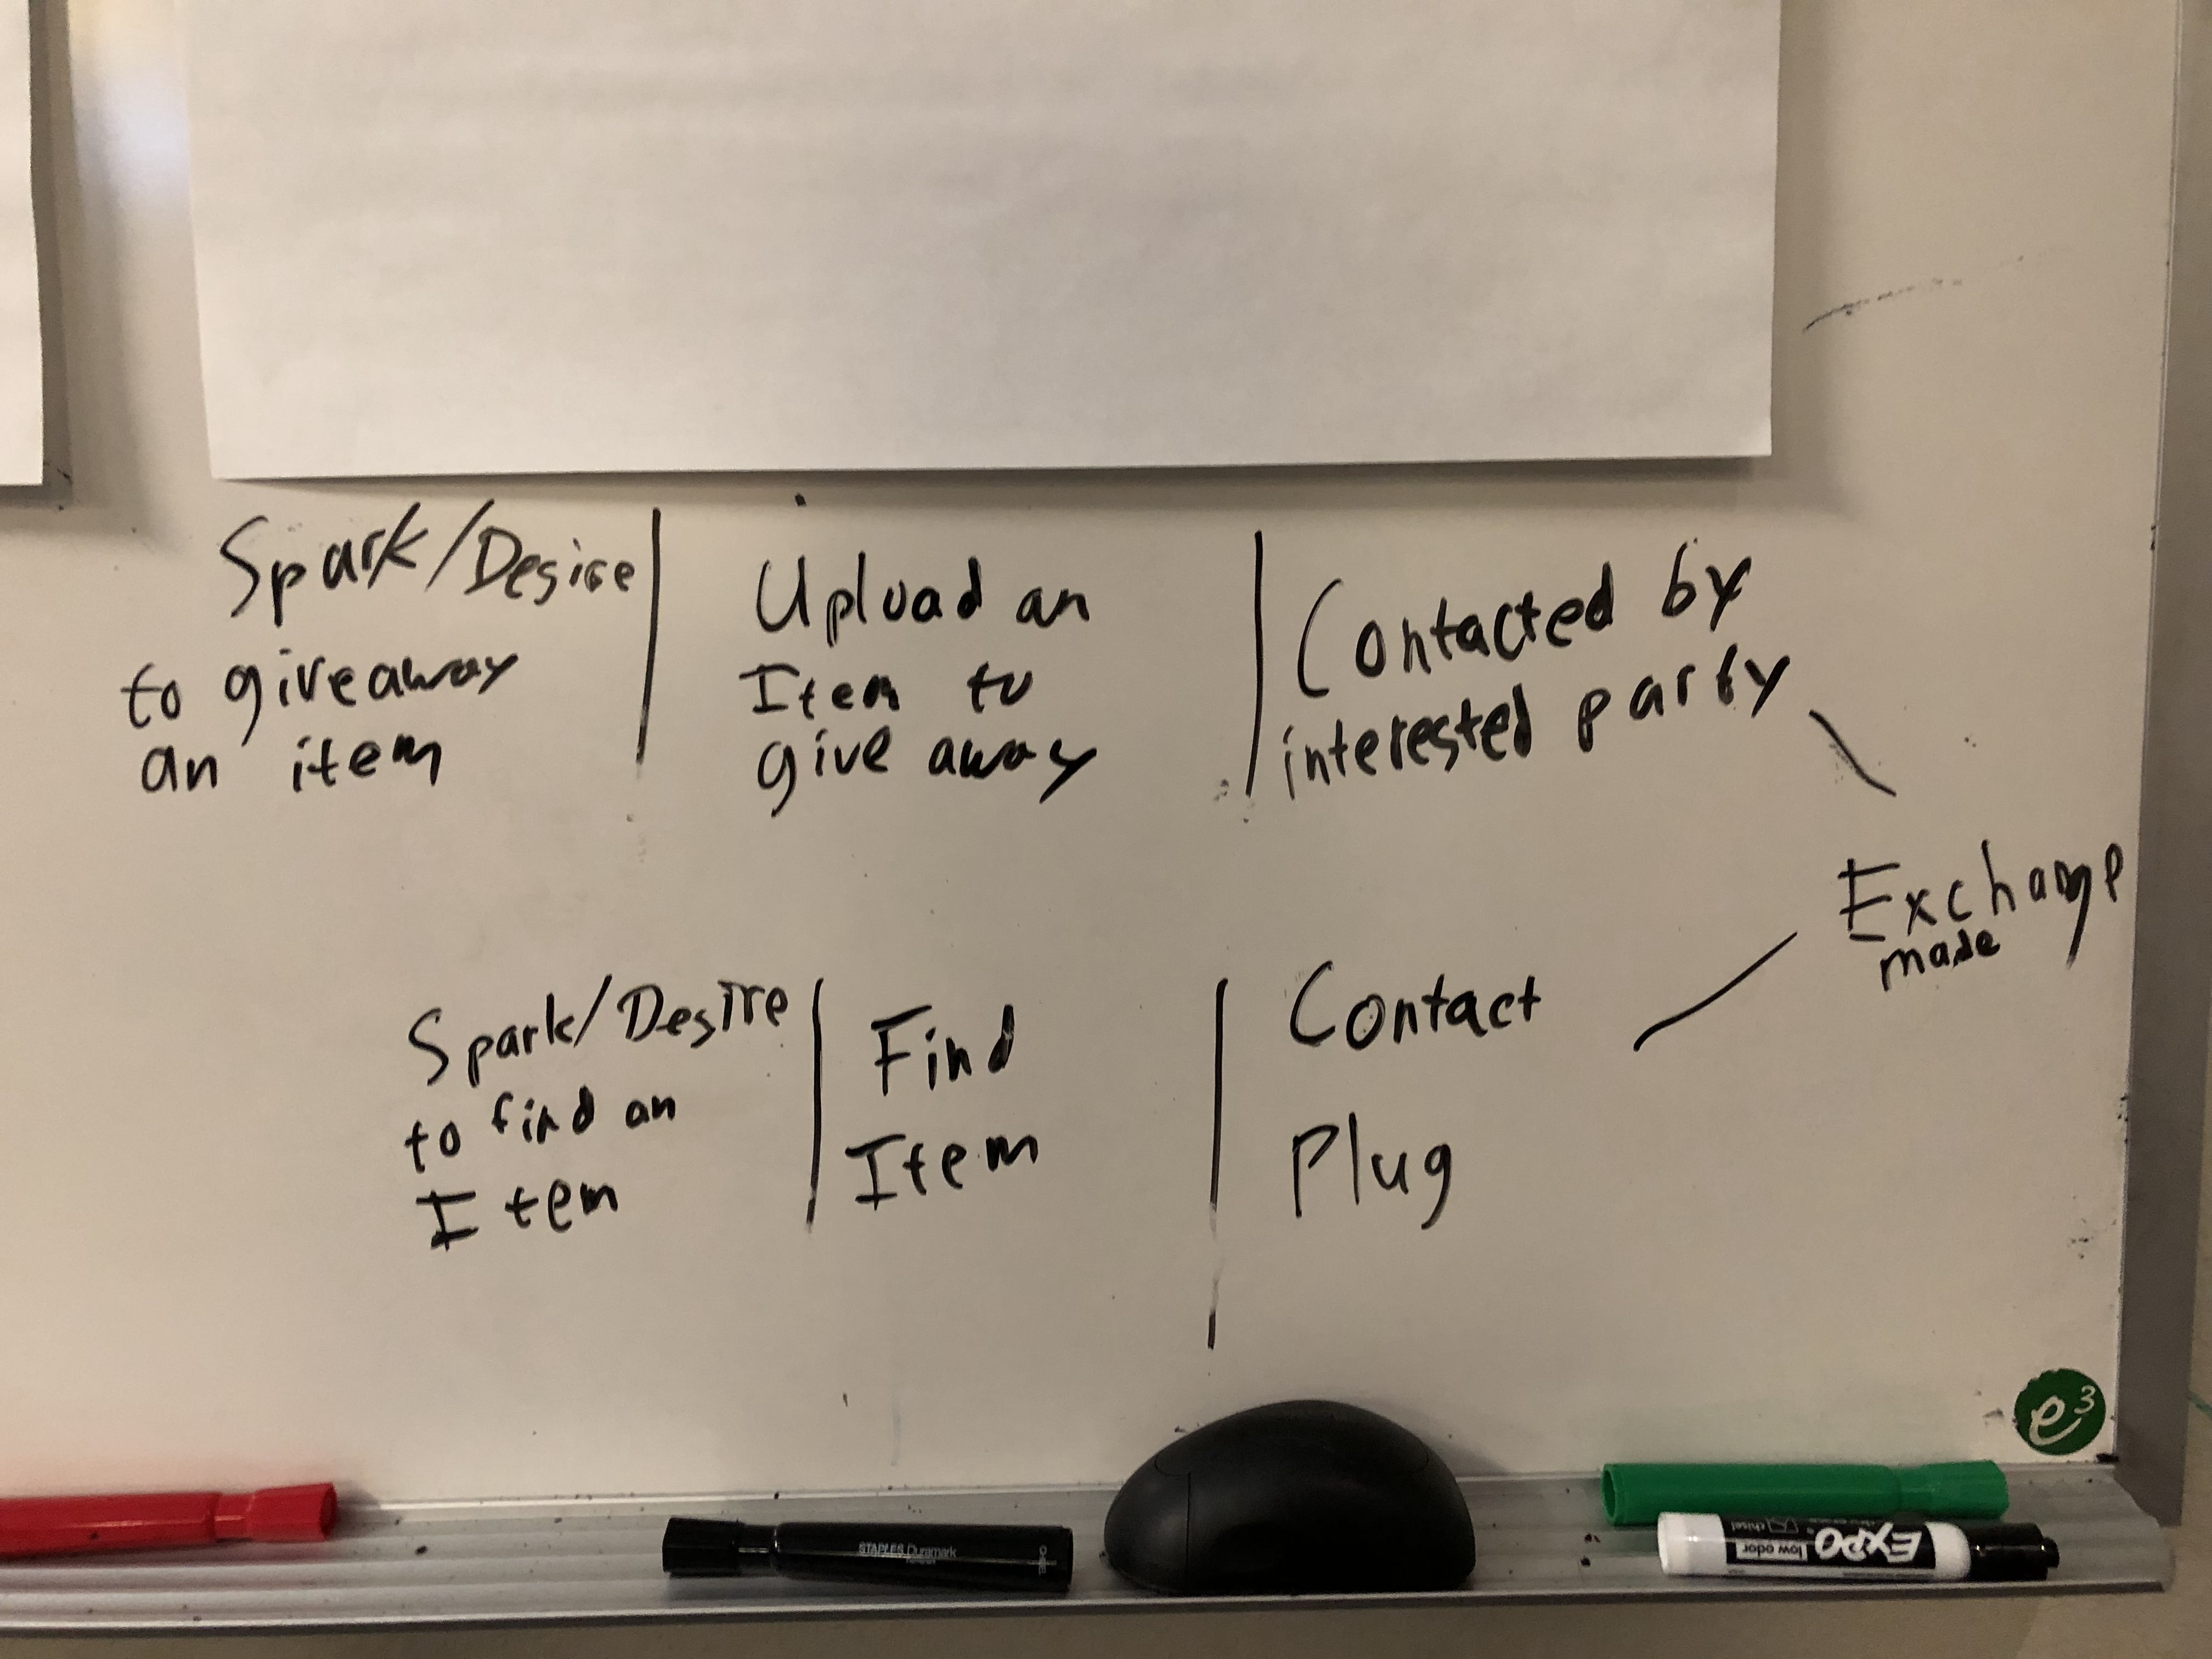 Spark/Desire
to giveaway
an item
Upload an
Item to
give away
Contacted by
interested party
Exchange
made
Spark/Desire
to find an
Item
Find
Item
Contact
Plug
e3
STAPLES Duramark
EXPO
low odor
chisel